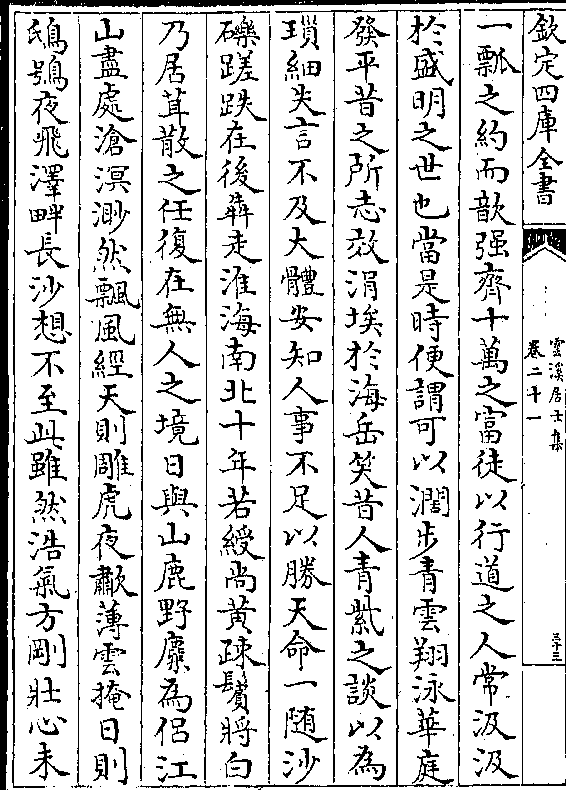 欽定四庫全書
雲溪居士集
卷二十一
三十三
一瓢之約而歆强齊十萬之富徒以行道之人常汲汲
於盛明之世也當是時便謂可以濶步青雲翔泳華庭
發平昔之所志效涓埃於海岳笑昔人青紫之談以為
瑣細失言不及大體安知人事不足以勝天命一随沙
礫蹉跌在後犇走淮海南北十年若綬尚黄疎鬢將白
乃居茸散之任復在無人之境日與山鹿野麋為侶江
山盡處滄溟渺然飄風經天則雕虎夜歗薄雲掩日則
鴟鴞夜飛澤畔長沙想不至此雖然浩氣方剛壯心未